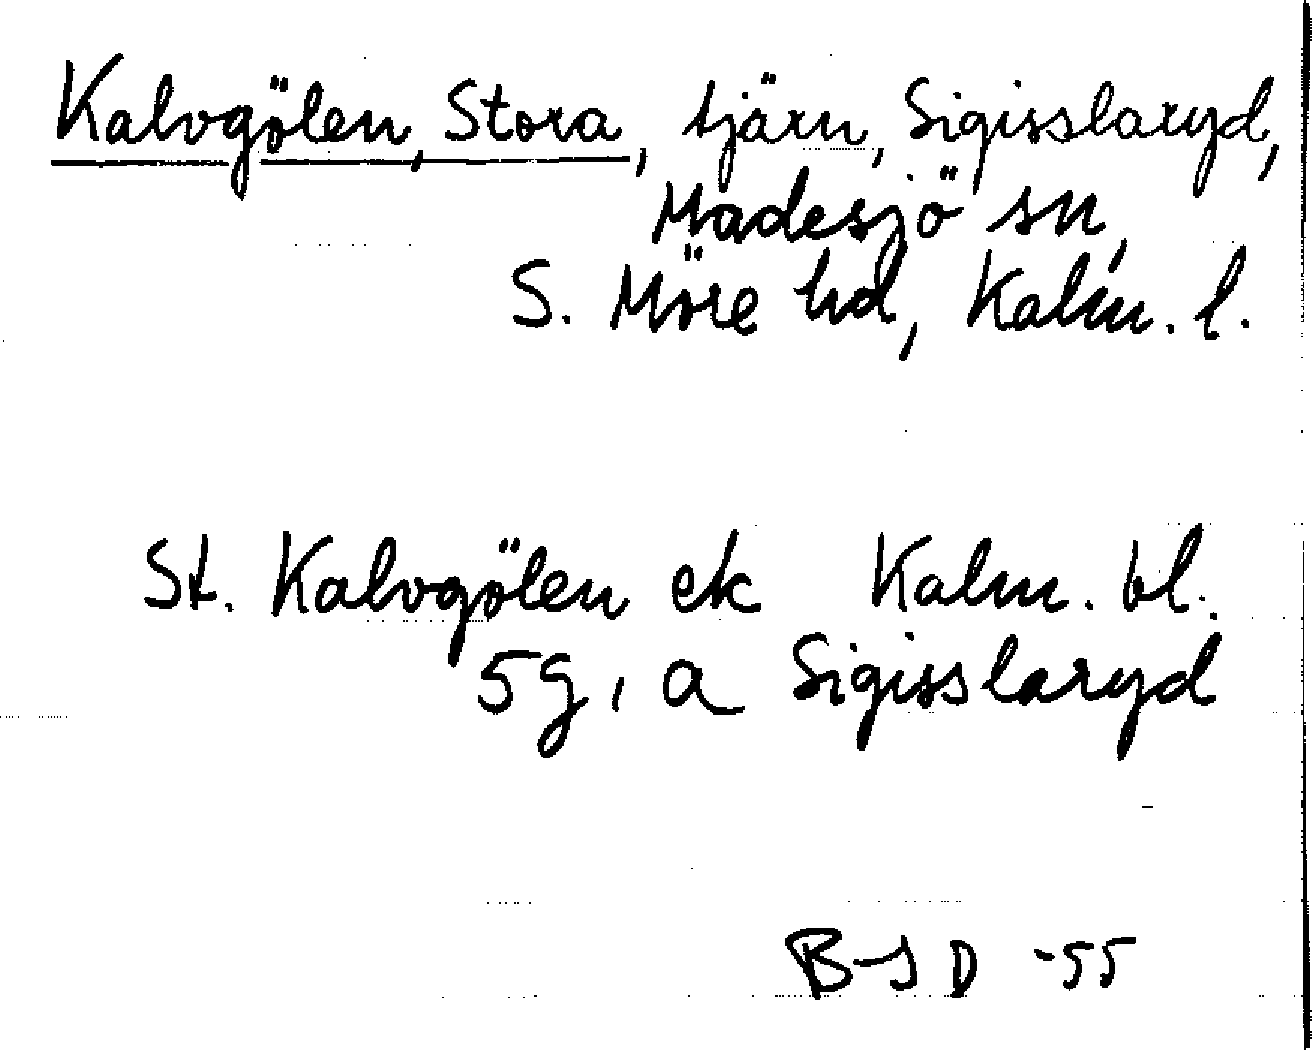 Kalvgölen, Stora, tjärn, Sigisslaryd,
Madesjö sn,
S. Möre hd, Kalm. l.
St. Kalvgölen ek Kalm. bl.
5g, a Sigisslaryd
B-J D -55